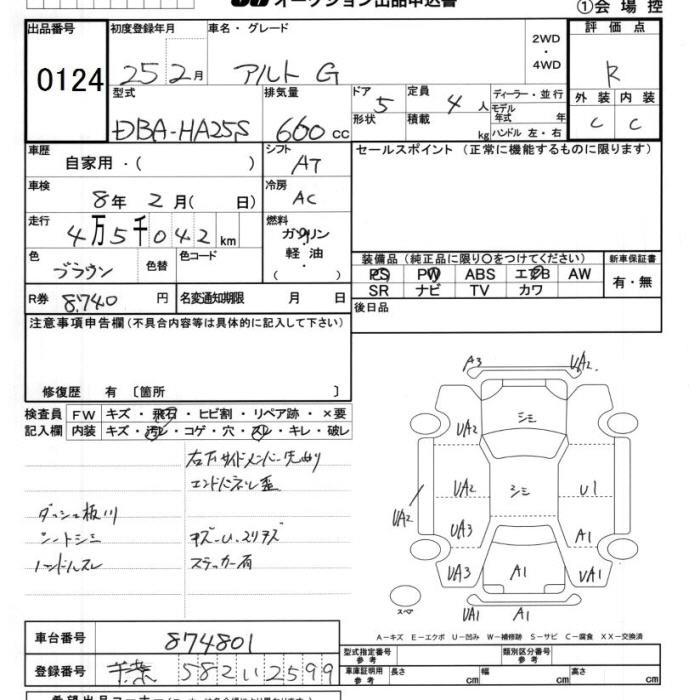 オークション出品申込書
①会場控
出品番号 初度登録年月 車名・グレード 2WD・4WD 評価点
0124 25 2月 アルト G R
型式 排気量 ドア 5 定員 4人 ディーラー・並行 外装 内装
DBA-HA25S 660cc 形状 積載 kg モデル年式 年 C C
ハンドル 左・右
車歴 自家用・( ) シフト AT セールスポイント (正常に機能するものに限ります)
車検 8年 2月( 日) 冷房 AC
走行 4万5千042km 燃料 ガソリン・軽油・( )
色 ブラウン 色替 色コード 装備品 (純正品に限り〇をつけてください) 新車保証書
PS PW ABS エアB AW 有・無
SR ナビ TV カワ
R券 8,740円 名変通知期限 月 日 後日品
注意事項申告欄 (不具合内容等は具体的に記入して下さい)
修復歴 有 〔箇所 〕
検査員 FW キズ・飛石・ヒビ割・リペア跡・×要
記入欄 内装 キズ・汚レ・コゲ・穴・スレ・キレ・破レ
右下サイドメンバー先曲り
エンドパネル歪
ダッシュ板
シートシミ キズ・U・スリキズ
ハンドルスレ ステッカー有
A3 UA2
シミ
UA2
UA2 シミ U1
UA2
UA3 A1
UA3 A1 UA1
UA1 A1
スペア
A-キズ E-エクボ U-凹み W-補修跡 S-サビ C-腐食 XX-交換済
車台番号 874801 型式指定番号 参考 類別区分番号 参考
登録番号 千葉 582 い 2599 車庫証明用 参考 長さ cm 幅 cm 高さ cm